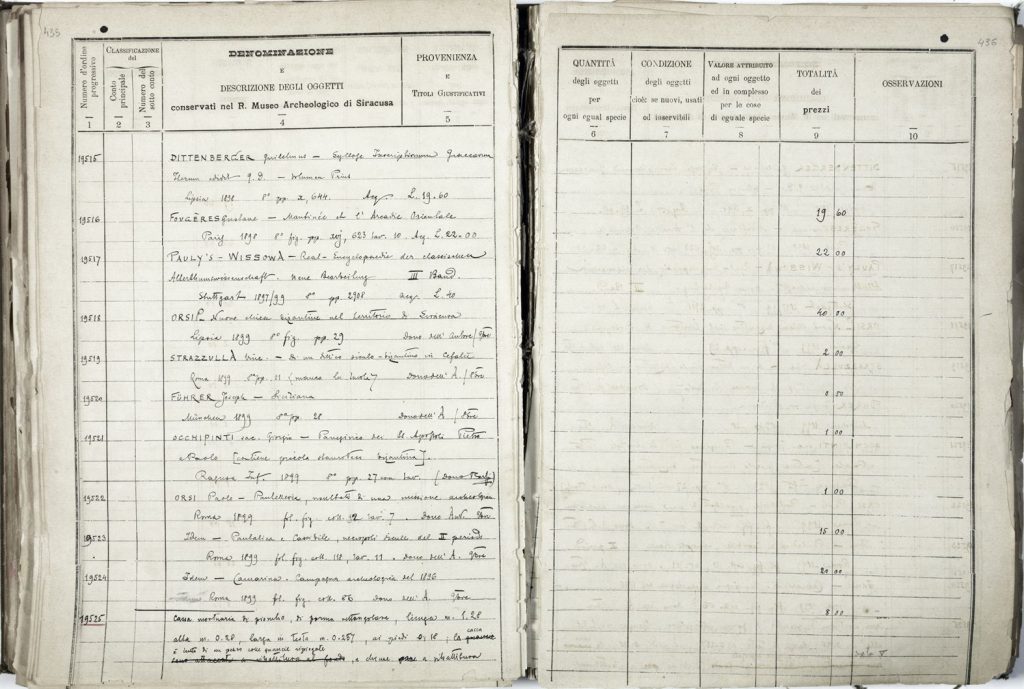 435
Numero d'ordine progressivo
1
CLASSIFICAZIONE del
Conto principale
2
Numero del sotto conto
3
DENOMINAZIONE
E
DESCRIZIONE DEGLI OGGETTI
conservati nel R. Museo Archeologico di Siracusa
4
PROVENIENZA
E
TITOLI GIUSTIFICATIVI
5
19515 DITTENBERGER Guilelmus – Sylloge Inscriptionum Graecarum
Iterum edidit G. D. – Volumen Prius
Lipsia 1898 8° pp. X, 644. Acq. L. 19.60
19516 FOUGÈRES Gustave – Mantinée et l'Arcadie Orientale
Paris 1898 8° fig. pp. XVI, 623 tav. 10 Acq. L. 22.00
19517 PAULY'S – WISSOWA – Real-Encyclopaedie der classischen
Alterthumswissenschaft. Neue Bearbeitung III Band.
Stuttgart 1897/99 8° pp. 2908 acq. L. 40
19518 ORSI P. Nuove chiese bizantine nel territorio di Siracusa
Lipsia 1899 8° fig. pp. 29 Dono dell'Autore
19519 STRAZZULLA Vinc. – Di un siculo-bizantino in Cefalù
Roma 1899 8° pp. 11 (manca la tavola) Dono dell'A.
19520 FÜHRER Joseph – Siciliana
München 1899 8° pp. 28 Dono dell'A.
19521 OCCHIPINTI sac. Giorgio – Panegirico dei SS. Apostoli Pietro
e Paolo [contiene piccola bizantina].
Ragusa Inf. 1899 8° pp. 27 con tav. (Dono
19522 ORSI Paolo – Pantelleria, risultati di una missione archeologica
Roma 1899 fol. fig. coll. 92 tav. 7. Dono Aut.
19523 Idem – Pantalica e Cassibile, necropoli sicule del II periodo
Roma 1899 fol. fig. coll. 118, tav. 11. Dono dell'A.
19524 Idem – Camarina. Campagna archeologica del 1896
Roma 1899 fol. fig. coll. 56 Dono dell'A.
19525 Cassa mortuaria di piombo, di forma rettangolare, lunga m. 1.28
alta m. 0.28, larga in testa m. 0.287, ai piedi 0.18; la cassa
è tutta di un pezzo colle ripiegate
e chiuse a ribattitura
436
QUANTITÀ
degli oggetti
per
ogni egual specie
6
CONDIZIONE
degli oggetti
cioè: se nuovi, usati
od inservibili
7
VALORE ATTRIBUITO
ad ogni oggetto
ed in complesso
per le cose
di eguale specie
8
TOTALITÀ
dei
prezzi
9
OSSERVAZIONI
10
19 60
22 00
40 00
2 00
0 50
1 00
1 00
15 00
20 00
8 00